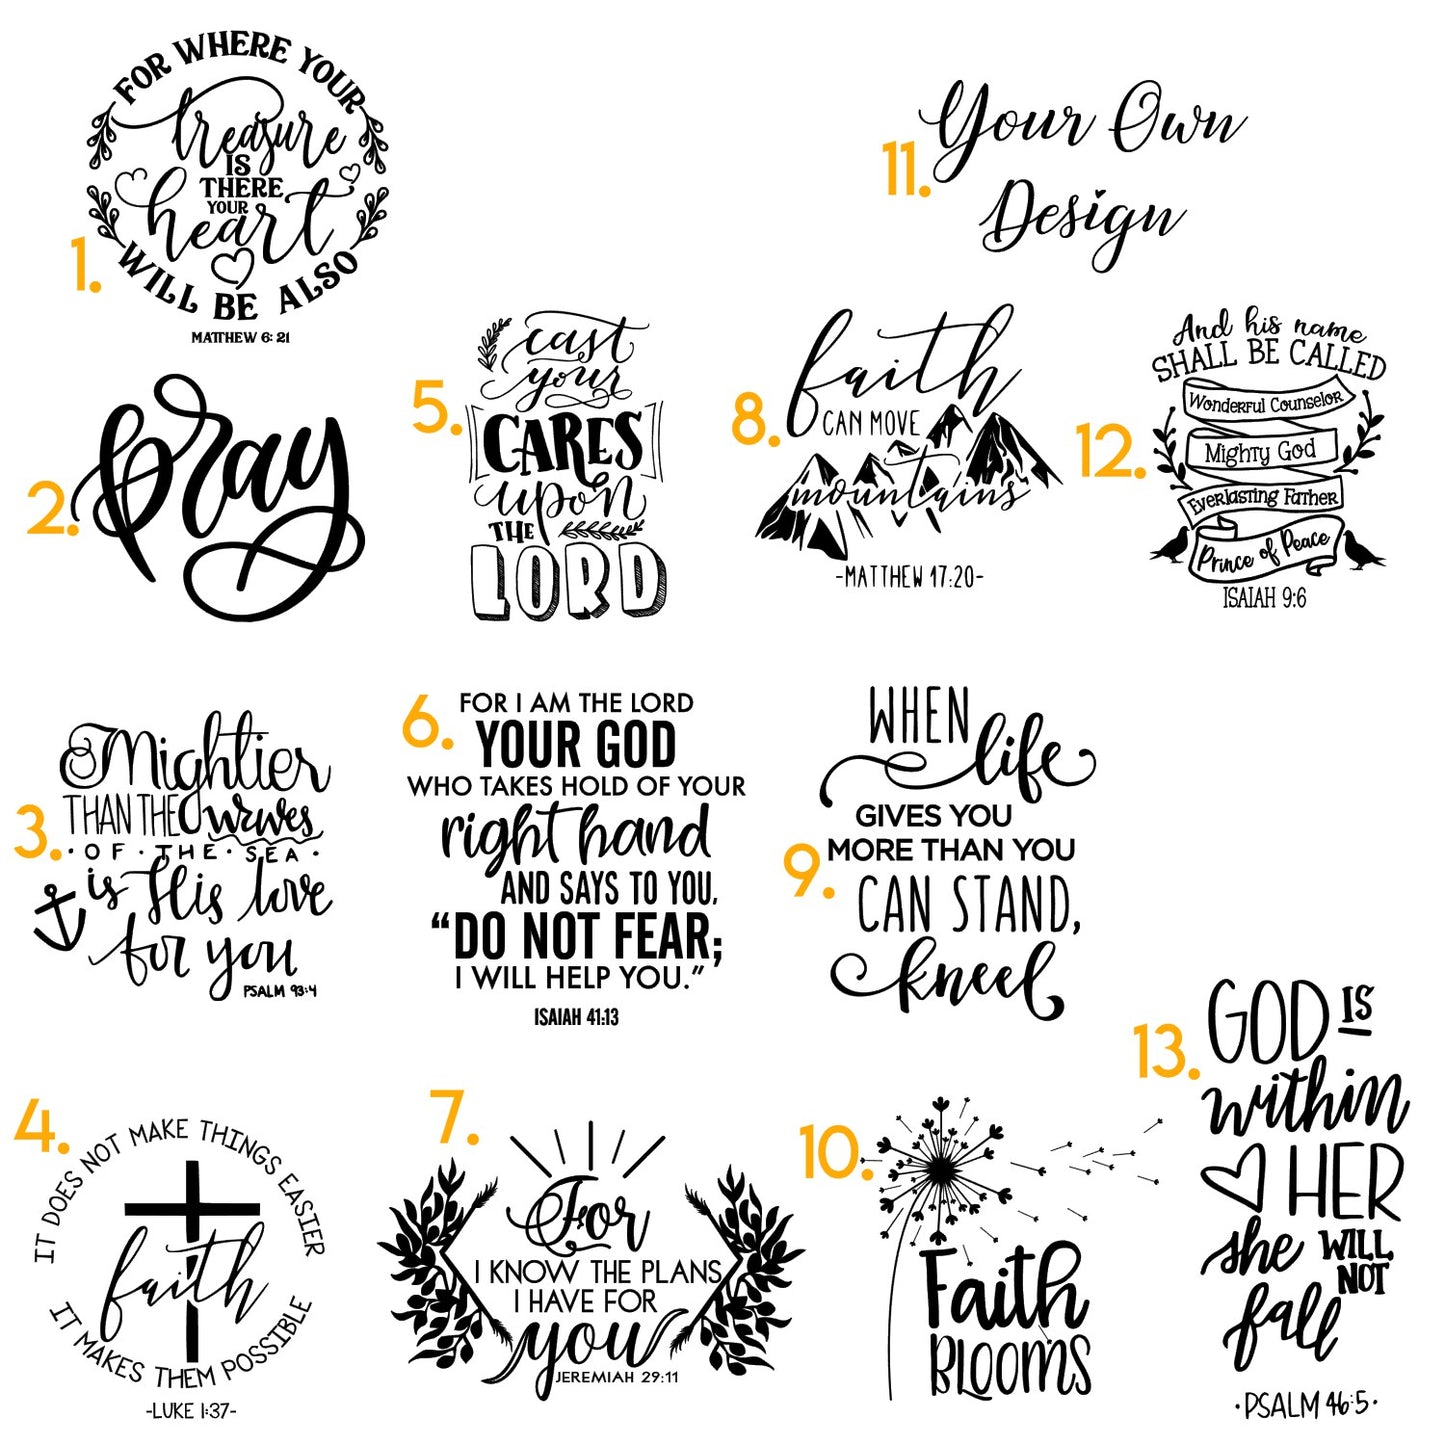 1.
FOR WHERE YOUR
treasure
IS
THERE
YOUR
heart
WILL BE ALSO
MATTHEW 6:21
2.
pray
3.
Mightier
THAN THE waves
·OF·THE·SEA·
is His love
for you
PSALM 93:4
4.
IT DOES NOT MAKE THINGS EASIER
faith
IT MAKES THEM POSSIBLE
-LUKE 1:37-
5.
cast
your
CARES
upon
THE
LORD
6.
FOR I AM THE LORD
YOUR GOD
WHO TAKES HOLD OF YOUR
right hand
AND SAYS TO YOU,
“DO NOT FEAR;
I WILL HELP YOU.”
ISAIAH 41:13
7.
For
I KNOW THE PLANS
I HAVE FOR
you
JEREMIAH 29:11
8.
faith
CAN MOVE
mountains
-MATTHEW 17:20-
9.
WHEN
life
GIVES YOU
MORE THAN YOU
CAN STAND,
kneel
10.
Faith
BLOOMS
11.
Your Own
Design
12.
And his name
SHALL BE CALLED
Wonderful Counselor
Mighty God
Everlasting Father
Prince of Peace
ISAIAH 9:6
13.
GOD IS
within
HER
she WILL
NOT
fall
·PSALM 46:5·